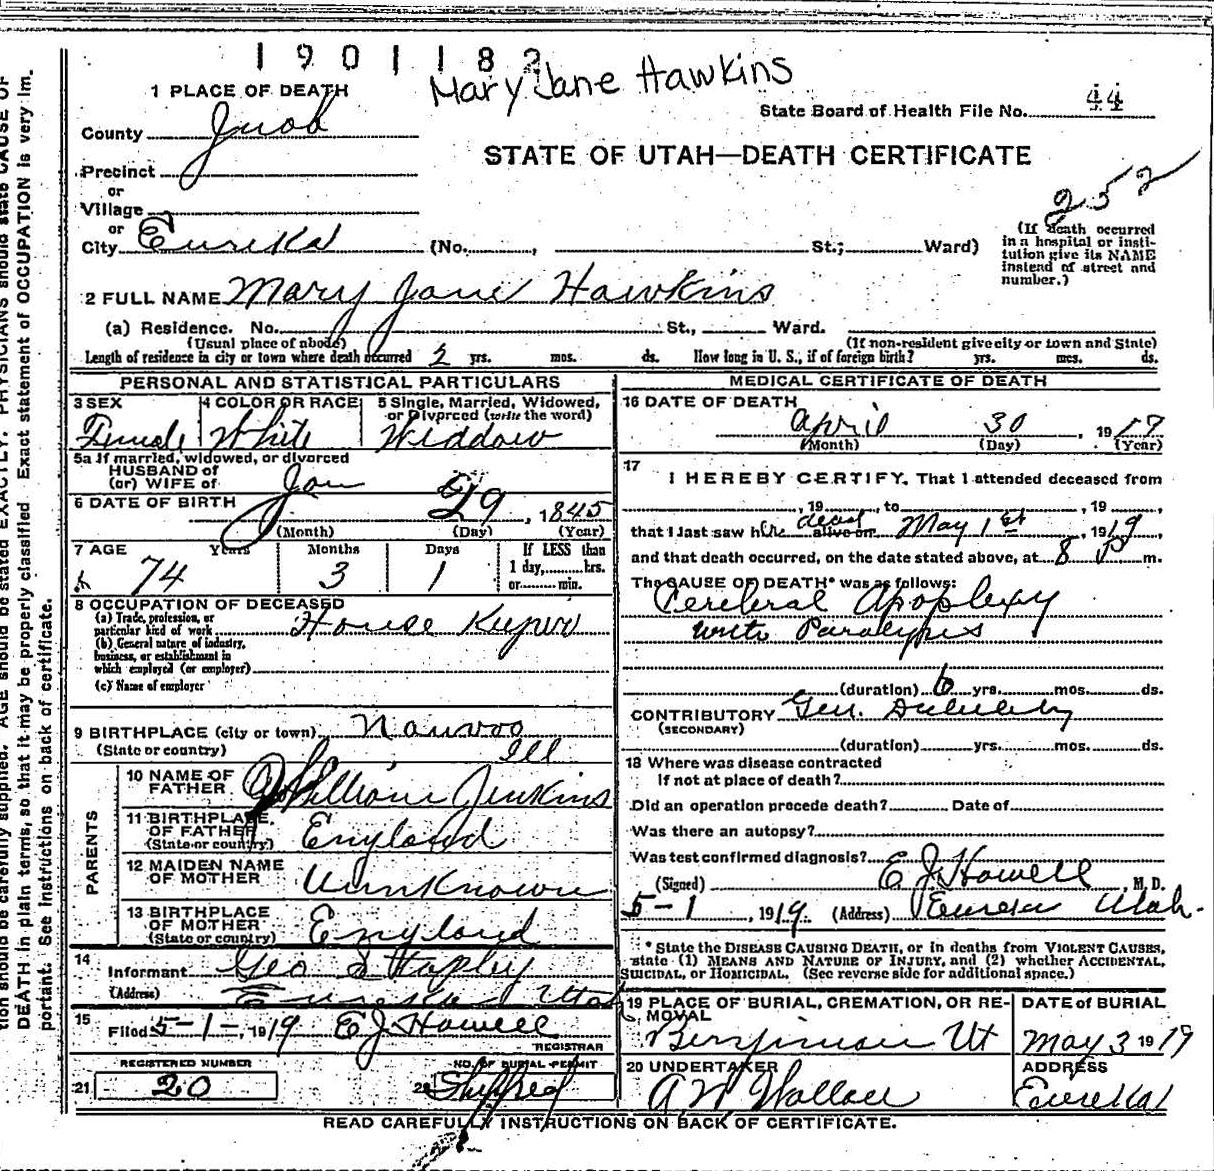 1901182
Mary Jane Hawkins
1 PLACE OF DEATH
State Board of Health File No. 44
County Juab
STATE OF UTAH—DEATH CERTIFICATE
Precinct
or
Village
252
or
City Eureka (No. , St.; Ward)
(If death occurred
in a hospital or insti-
tution give its NAME
instead of street and
number.)
2 FULL NAME Mary Jane Hawkins
(a) Residence. No. St., Ward.
(Usual place of abode) (If non-resident give city or town and State)
Length of residence in city or town where death occurred 2 yrs. mos. ds. How long in U. S., if of foreign birth? yrs. mos. ds.
PERSONAL AND STATISTICAL PARTICULARS
3 SEX 4 COLOR OR RACE 5 Single, Married, Widowed,
or Divorced (write the word)
Female White Widdow
5a If married, widowed, or divorced
HUSBAND of
(or) WIFE of
6 DATE OF BIRTH Jan 29, 1845
(Month) (Day) (Year)
7 AGE Years Months Days If LESS than
1 day, hrs.
or min.
74 3 1
8 OCCUPATION OF DECEASED
(a) Trade, profession, or
particular kind of work House Keeper
(b) General nature of industry,
business, or establishment in
which employed (or employer)
(c) Name of employer
9 BIRTHPLACE (city or town) Nauvoo
(State or country) Ill
PARENTS
10 NAME OF
FATHER William Jenkins
11 BIRTHPLACE
OF FATHER England
(State or country)
12 MAIDEN NAME
OF MOTHER Unnknown
13 BIRTHPLACE
OF MOTHER England
(State or country)
14
Informant Geo S Tapley
(Address) Eureka Utah
15
Filed 5-1-, 1919 E J Howell
REGISTRAR
REGISTERED NUMBER
21 20
NO. OF BURIAL PERMIT
22 Shipped
MEDICAL CERTIFICATE OF DEATH
16 DATE OF DEATH
April 30, 1919
(Month) (Day) (Year)
17
I HEREBY CERTIFY, That I attended deceased from
, 19 , to , 19 ,
that I last saw her dead alive on May 1st, 1919
and that death occurred, on the date stated above, at 8 P m.
The CAUSE OF DEATH* was as follows:
Cerebral Apoplexy
with Paralysis
(duration) 6 yrs. mos. ds.
CONTRIBUTORY Gen. Debility
(SECONDARY)
(duration) yrs. mos. ds.
18 Where was disease contracted
If not at place of death?
Did an operation precede death? Date of
Was there an autopsy?
Was test confirmed diagnosis?
(Signed) E J. Howell, M. D.
5-1, 1919. (Address) Eureka Utah.
* State the DISEASE CAUSING DEATH, or in deaths from VIOLENT CAUSES,
state (1) MEANS AND NATURE OF INJURY, and (2) whether ACCIDENTAL,
SUICIDAL, or HOMICIDAL. (See reverse side for additional space.)
19 PLACE OF BURIAL, CREMATION, OR RE-
MOVAL
Benjiman Ut
DATE of BURIAL
May 3 1919
20 UNDERTAKER
A W Wallace
ADDRESS
Eureka
READ CAREFULLY INSTRUCTIONS ON BACK OF CERTIFICATE.
tion should be carefully supplied. AGE should be stated EXACTLY. PHYSICIANS should state CAUSE OF
DEATH in plain terms, so that it may be properly classified. Exact statement of OCCUPATION is very im-
portant. See instructions on back of certificate.